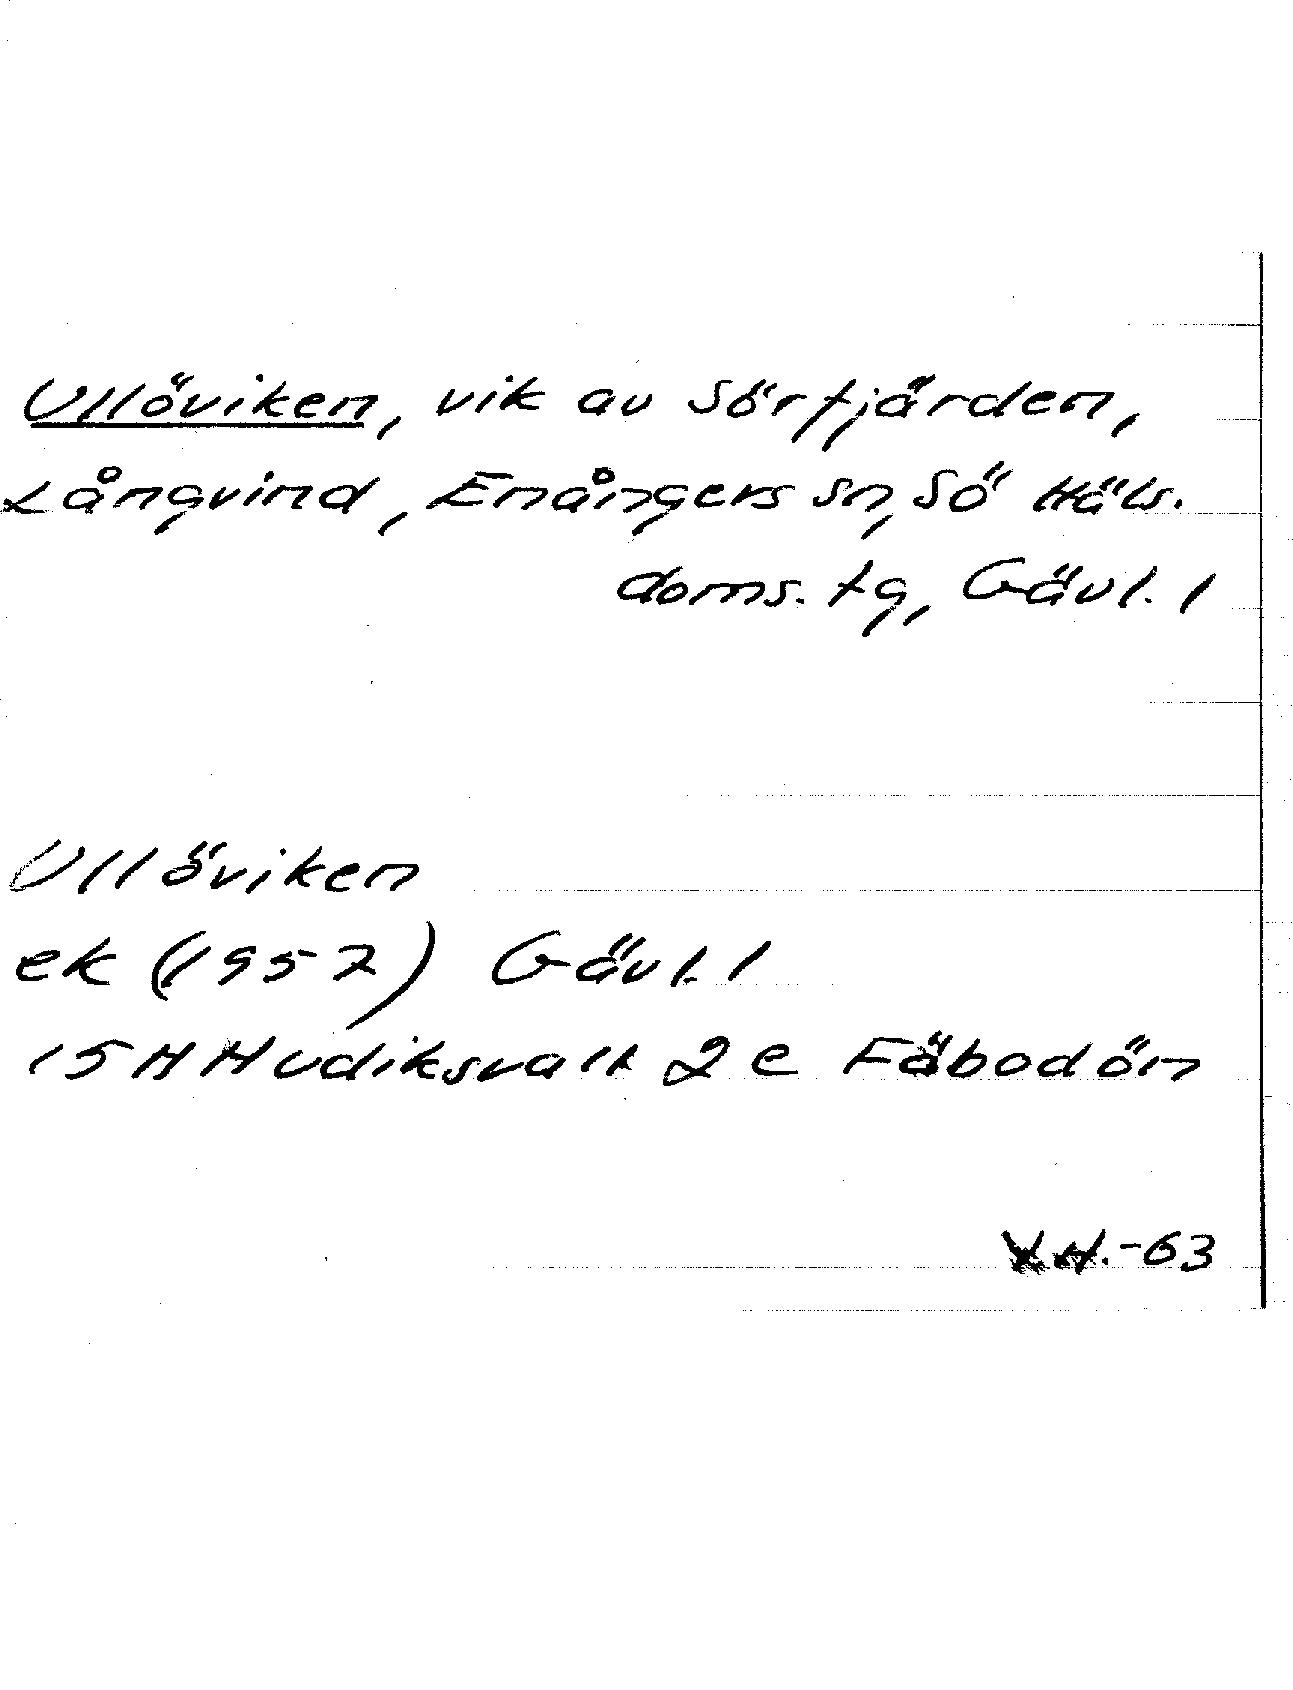 Ullöviken, vik av Sörfjärden,
Långvind, Enångers sn, Sö Häls.
doms. tg, Gävl. l
Ullöviken
ek (1957) Gävl. l
15 H Hudiksvall 2 e Fäbodön
-63